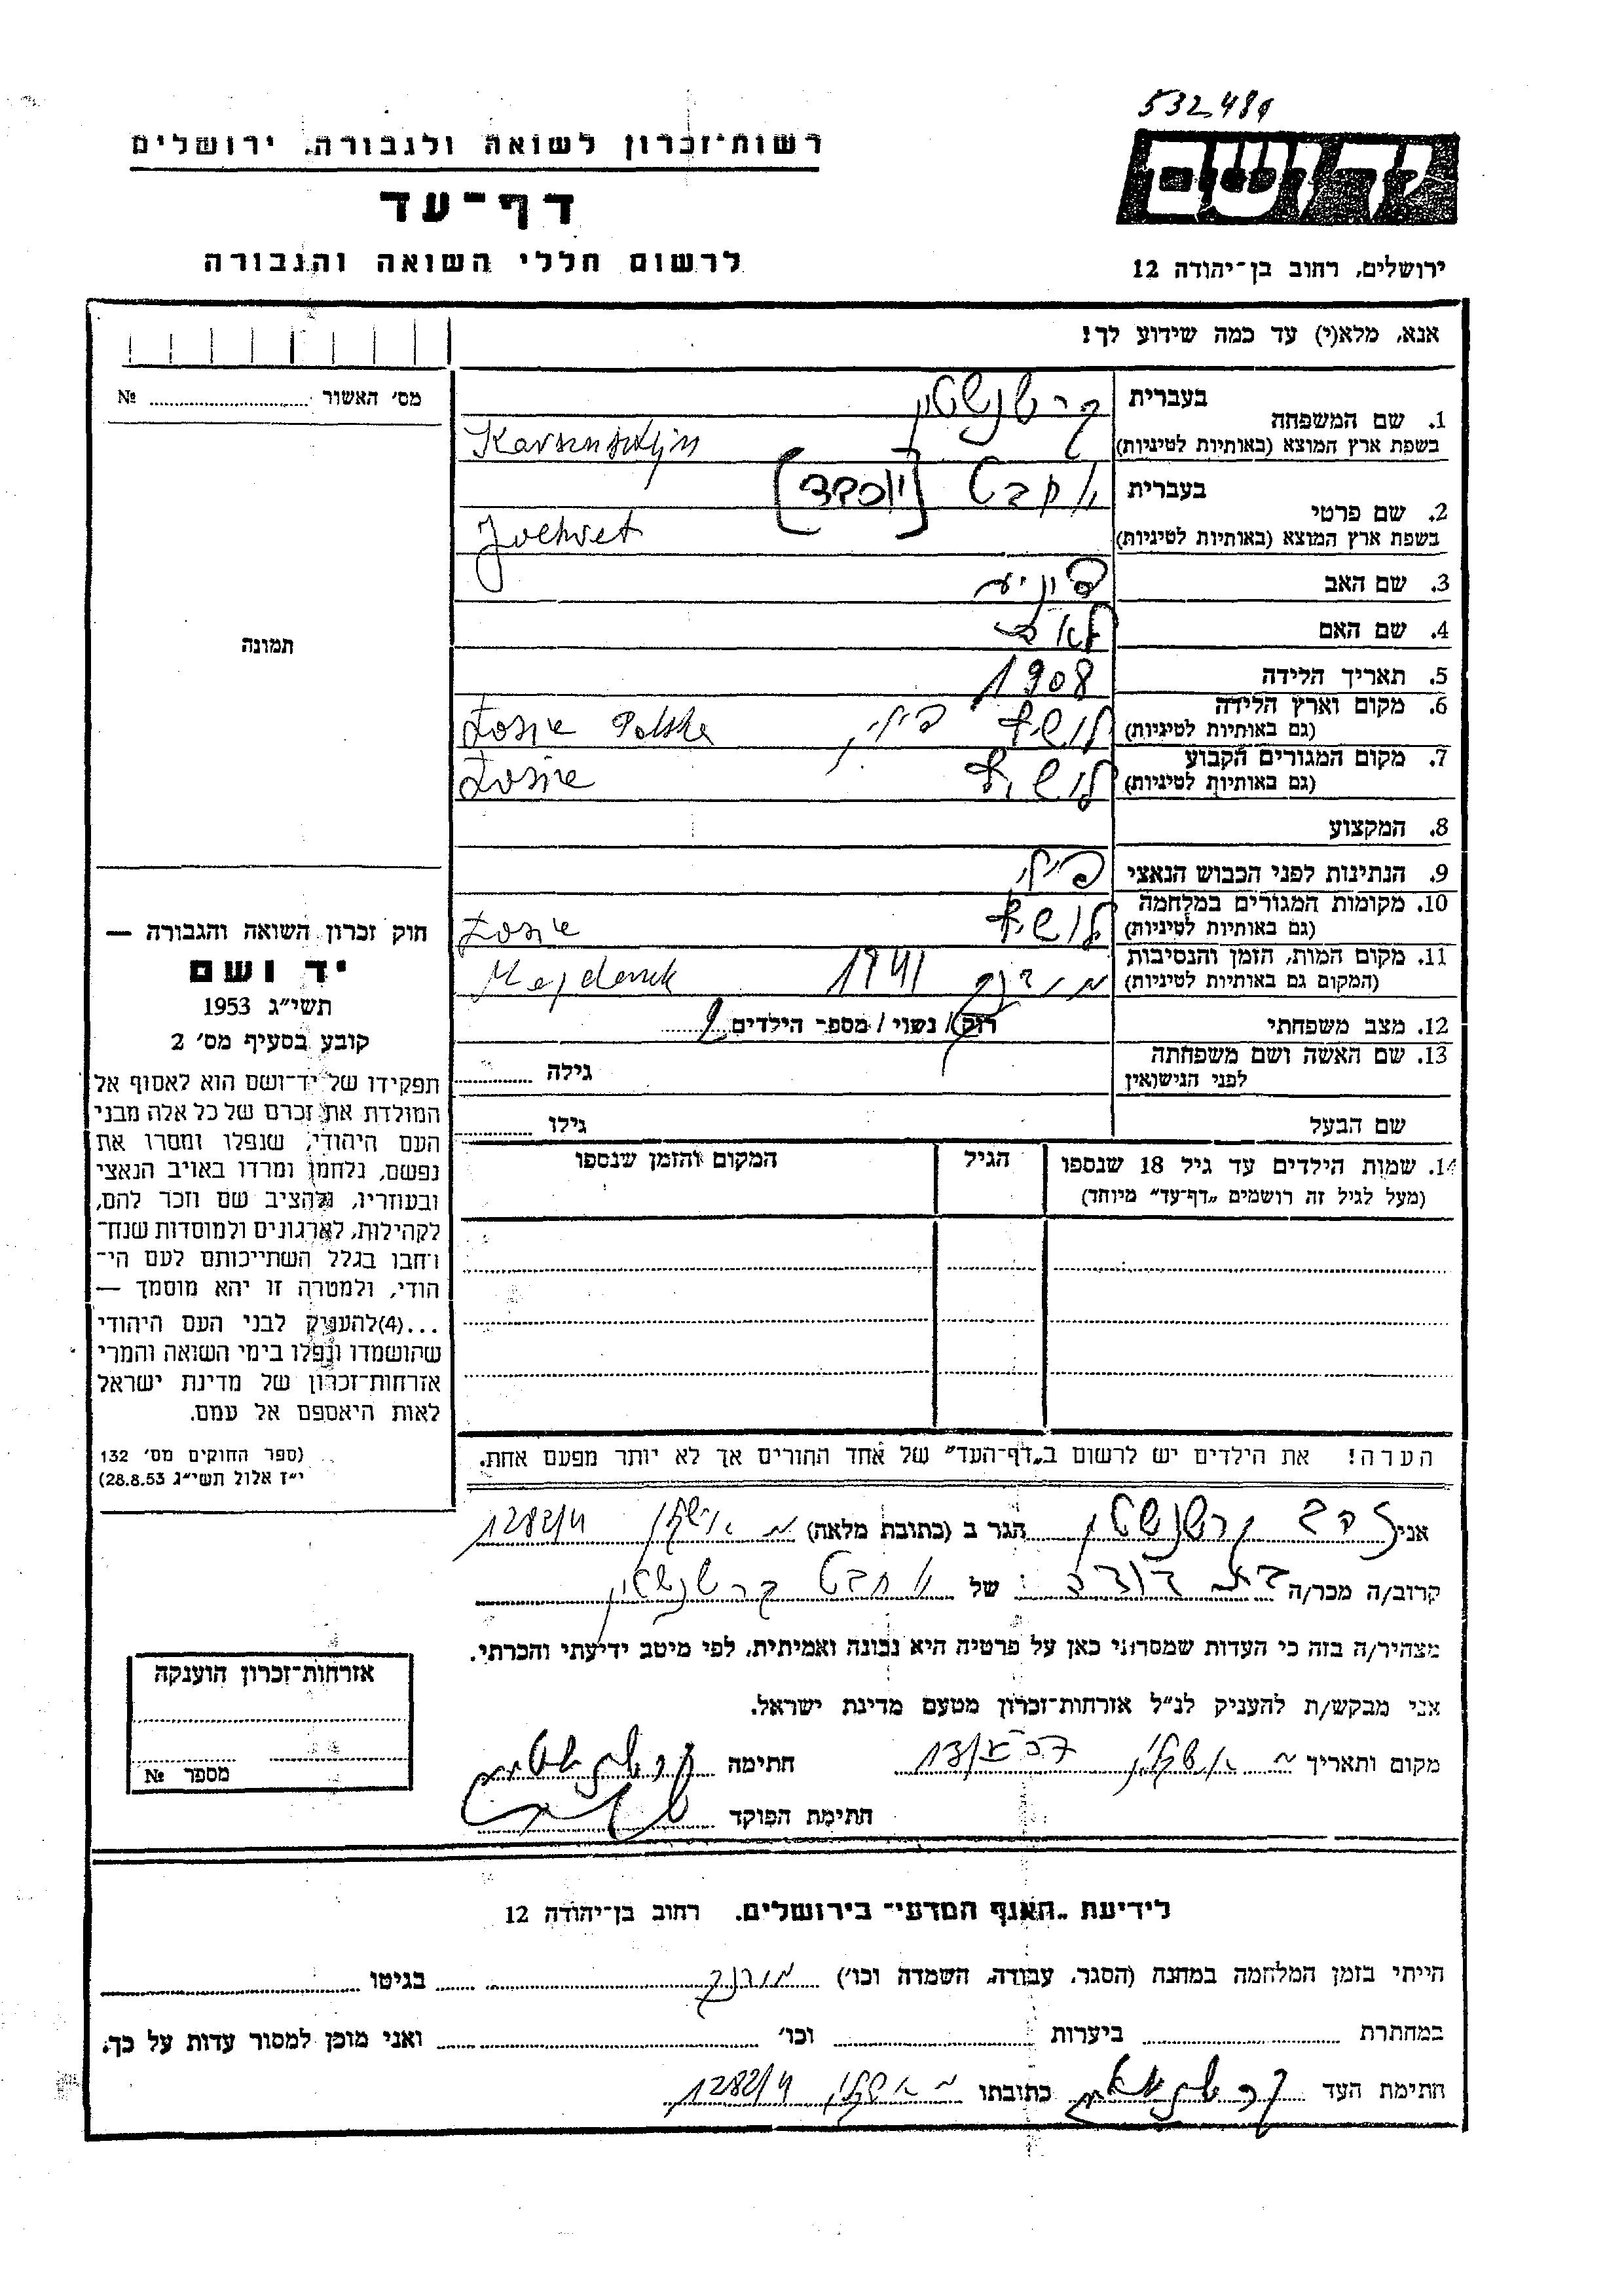 532489
רשות־זכרון לשואה ולגבורה, ירושלים
יד ושם
דף־עד
לרשום חללי השואה והגבורה
ירושלים, רחוב בן־יהודה 12
אנא, מלא(י) עד כמה שידוע לך!
מס׳ האשור № 
1. שם המשפחה בעברית קרשנשטין
בשפת ארץ המוצא (באותיות לטיניות)
2. שם פרטי בעברית יוחבט [יוכבד]
בשפת ארץ המוצא (באותיות לטיניות) Jochvet
3. שם האב
4. שם האם
תמונה
5. תאריך הלידה 1908
6. מקום וארץ הלידה (גם באותיות לטיניות) פולין Łosice Polska
7. מקום המגורים הקבוע (גם באותיות לטיניות) Łosice
8. המקצוע
9. הנתינות לפני הכבוש הנאצי פולין
10. מקומות המגורים במלחמה (גם באותיות לטיניות) Łosice
11. מקום המות, הזמן והנסיבות (המקום גם באותיות לטיניות) 1941 Majdanek
12. מצב משפחתי רווק / נשוי / מספר הילדים
13. שם האשה ושם משפחתה לפני הנישואין גילה
שם הבעל גילו
14. שמות הילדים עד גיל 18 שנספו (מעל לגיל זה רושמים „דף־עד״ מיוחד) הגיל המקום והזמן שנספו
חוק זכרון השואה והגבורה —
יד ושם
תשי״ג 1953
קובע בסעיף מס׳ 2
תפקידו של יד־ושם הוא לאסוף אל
המולדת את זכרם של כל אלה מבני
העם היהודי, שנפלו ומסרו את
נפשם, נלחמו ומרדו באויב הנאצי
ובעוזריו, ולהציב שם וזכר להם,
לקהילות, לארגונים ולמוסדות שנח־
רחבו בגלל השתייכותם לעם הי־
הודי, ולמטרה זו יהא מוסמך —
...(4)להעניק לבני העם היהודי
שהושמדו ונפלו בימי השואה והמרי
אזרחות־זכרון של מדינת ישראל
לאות היאספם אל עמם.
(ספר החוקים מס׳ 132
י״ז אלול תשי״ג 28.8.53)
הערה! את הילדים יש לרשום ב„דף־העד״ של אחד ההורים אך לא יותר מפעם אחת.
אני זהב קרשנשטין הגר ב (כתובת מלאה) אשקלון 1282/4
קרוב/ה מכר/ה בת דודה של יוחבט קרשנשטין
מצהיר/ה בזה כי העדות שמסרתי כאן על פרטיה היא נכונה ואמיתית, לפי מיטב ידיעתי והכרתי.
אני מבקש/ת להעניק לנ״ל אזרחות־זכרון מטעם מדינת ישראל.
מקום ותאריך אשקלון חתימה
חתימת הפוקד
אזרחות־זכרון הוענקה
מספר №
לידיעת „האגף המדעי״ בירושלים, רחוב בן־יהודה 12
הייתי בזמן המלחמה במחנה (הסגר, עבודה, השמדה וכו׳) בגיטו
במחתרת ביערות וכו׳ ואני מוכן למסור עדות על כך.
חתימת העד כתובתו אשקלון 1282/4